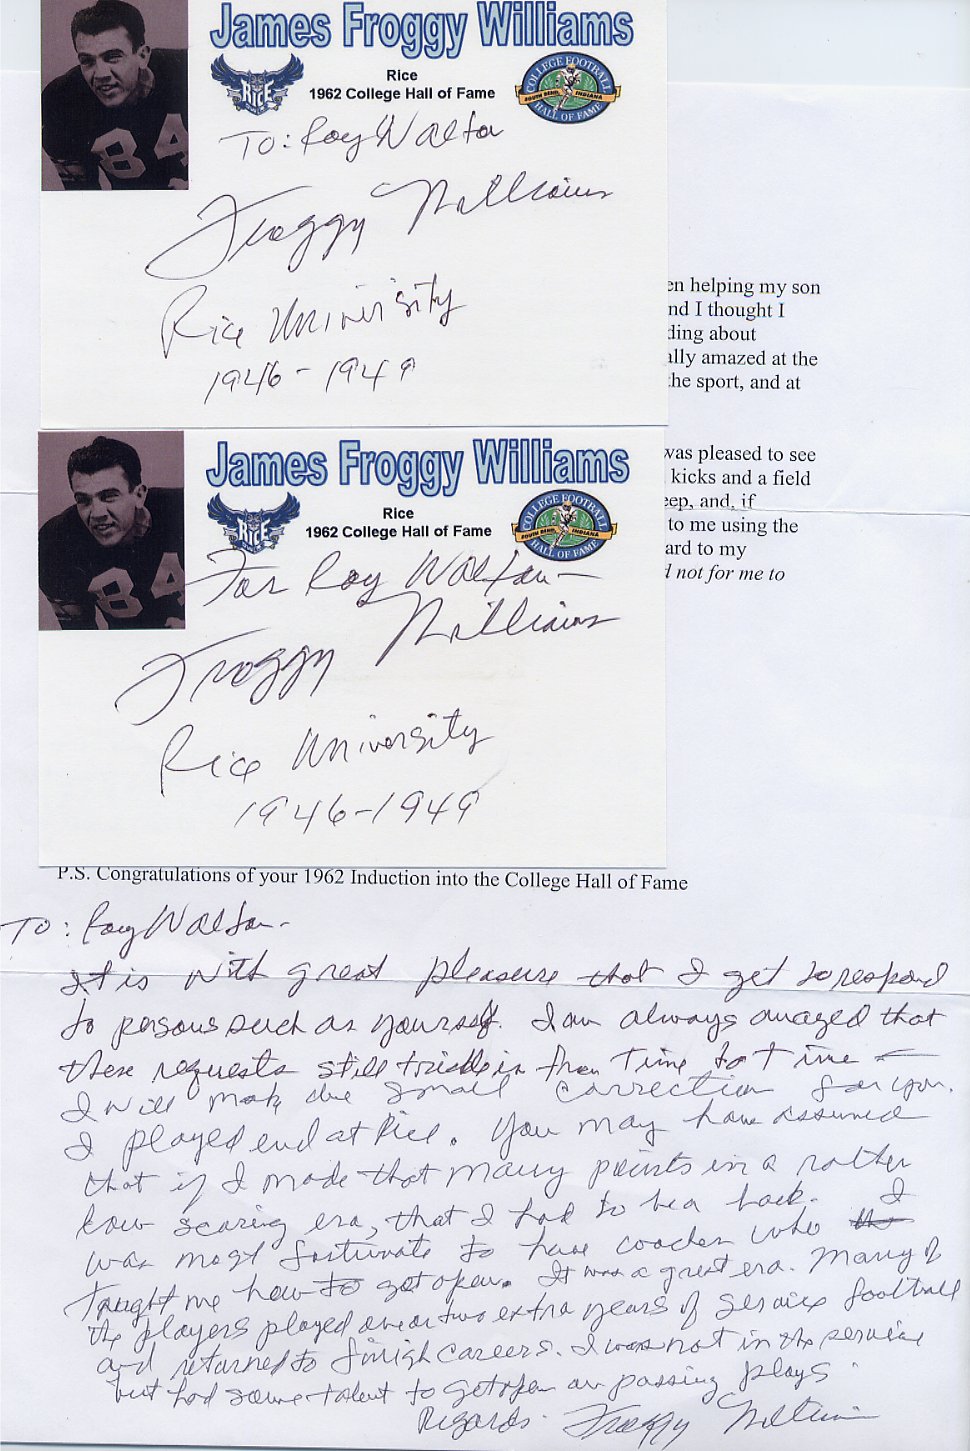 James Froggy Williams
RICE
Rice
1962 College Hall of Fame
COLLEGE FOOTBALL
SOUTH BEND, INDIANA
HALL OF FAME
84
To: Roy Walton
Froggy Williams
Rice University
1946-1949
en helping my son
nd I thought I
ding about
ally amazed at the
he sport, and at
James Froggy Williams
RICE
Rice
1962 College Hall of Fame
COLLEGE FOOTBALL
SOUTH BEND, INDIANA
HALL OF FAME
84
For Roy Walton-
Froggy Williams
Rice University
1946-1949
was pleased to see
kicks and a field
eep, and, if
to me using the
ard to my
d not for me to
P.S. Congratulations of your 1962 Induction into the College Hall of Fame
To: Roy Walton-
It is with great pleasure that I get to respond
to persons such as yourself. I am always amazed that
these requests still trickle in from time to time -
I will make one small correction for you.
I played end at Rice. You may have assumed
that if I made that many points in a rather
low scoring era, that I had to be a back. I
was most fortunate to have coaches who
taught me how to get open. It was a great era. Many of
the players played one or two extra years of service football
and returned to finish careers. I was not in the service
but had some talent to get open on passing plays.
Regards. Froggy Williams